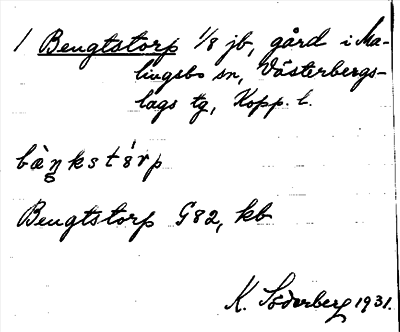 1 Bengtstorp 1/8 jb, gård i Ma-
lingsbo sn, Västerbergs-
lags tg, Kopp. l.
bàŋkstårp
Bengtstorp G82, kb
K. Söderberg 1931.